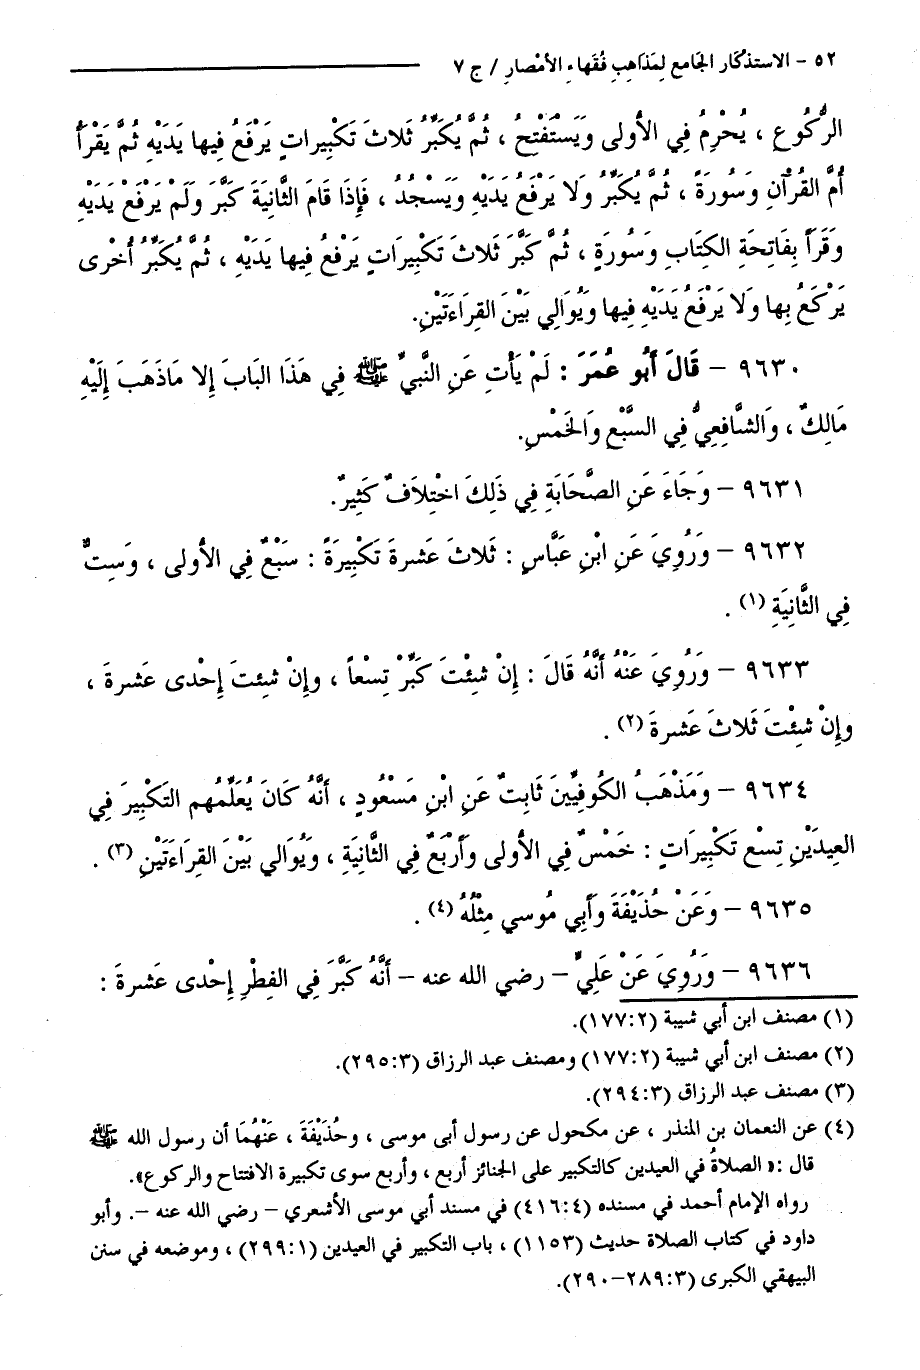 ٥٢ - الاستذكار الجامع لمذاهب فقهاء الأمصار / ج ٧
الرُّكُوعِ ، يُحْرِمُ فِي الأولى وَيَسْتَفْتِحُ ، ثُمَّ يُكَبِّرُ ثَلاثَ تَكْبِيراتٍ يَرْفَعُ فِيها يَدَيْهِ ثُمَّ يَقْرَأُ
أُمَّ القُرْآنِ وَسُورَةً ، ثُمَّ يُكَبِّرُ وَلا يَرْفَعُ يَدَيْهِ وَيَسْجُدُ ، فَإِذَا قَامَ الثَّانِيَةَ كَبَّرَ وَلَمْ يَرْفَعْ يَدَيْهِ
وَقَرَأَ بِفَاتِحَةِ الكِتَابِ وَسُورَةٍ ، ثُمَّ كَبَّرَ ثَلاثَ تَكْبِيرَاتٍ يَرْفَعُ فِيها يَدَيْهِ ، ثُمَّ يُكَبِّرُ أُخْرى
يَرْكَعُ بِها وَلا يَرْفَعُ يَدَيْهِ فِيها وَيُوَالِي بَيْنَ القِرَاءَتَيْنِ.
٩٦٣٠ - قَالَ أَبُو عُمَرَ : لَمْ يَأْتِ عَنِ النَّبِيِّ ﷺ فِي هَذَا البَابَ إِلا مَاذَهَبَ إِلَيْهِ
مَالِكٌ ، وَالشَّافِعِيُّ فِي السَّبْعِ وَالخَمْسِ.
٩٦٣١ - وَجَاءَ عَنِ الصَّحَابَةِ فِي ذَلِكَ اخْتِلاَفٌ كَثِيرٌ.
٩٦٣٢ - وَرُوِيَ عَنِ ابْنِ عَبَّاسٍ : ثَلاثَ عَشرةَ تَكْبِيرَةً : سَبْعٌ فِي الأولى ، وَسِتٌّ
فِي الثَّانِيَةِ (١) .
٩٦٣٣ - وَرُوِيَ عَنْهُ أَنَّهُ قَالَ : إِنْ شِئْتَ كَبِّرْ تِسْعاً ، وإِنْ شِئتَ إِحْدى عَشرةَ ،
وإِنْ شِئْتَ ثَلاثَ عَشرةَ (٢) .
٩٦٣٤ - وَمَذْهَبُ الكُوفِيِّينَ ثَابِتٌ عَنِ ابْنِ مَسْعُودٍ ، أَنَّهُ كَانَ يُعَلِّمُهم التَكْبِيرَ فِي
العِيدَيْنِ تِسْع تَكْبِيرَاتٍ : خَمْسٌ فِي الأولى وأَرْبَعٌ فِي الثَّانِيَةِ ، وَيُوَالي بَيْنَ القِرَاءَتَيْنِ (٣) .
٩٦٣٥ - وَعَنْ حُذَيْفَةَ وَأَبِي مُوسي مِثْلُهُ (٤) .
٩٦٣٦ - وَرُوِيَ عَنْ عَلِيٍّ - رضي الله عنه - أَنَّهُ كَبَّرَ فِي الفِطْرِ إِحْدى عَشرةَ :
(١) مصنف ابن أبي شيبة (١٧٧:٢).
(٢) مصنف ابن أبي شيبة (١٧٧:٢) ومصنف عبد الرزاق (٢٩٥:٣).
(٣) مصنف عبد الرزاق (٢٩٤:٣).
(٤) عن النعمان بن المنذر ، عن مكحول عن رسول أبى موسى ، وحُذَيْفَةَ ، عَنْهُمَا أن رسول الله ﷺ
قال :« الصلاةُ في العيدين كالتكبير على الجنائز أربع ، وأربع سوى تكبيرة الافتتاح والركوع».
رواه الإمام أحمد في مسنده (٤١٦:٤) في مسند أبي موسى الأشعري - رضي الله عنه -. وأبو
داود في كتاب الصلاة حديث (١١٥٣) ، باب التكبير في العيدين (٢٩٩:١) ، وموضعه في سنن
البيهقي الكبرى (٢٨٩:٣-٢٩٠).